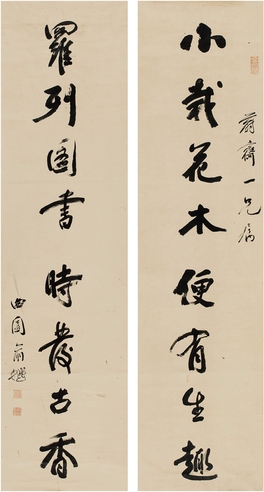 小栽花木便有生趣
蔚齋一兄属
羅列圖書時發古香
曲園俞樾